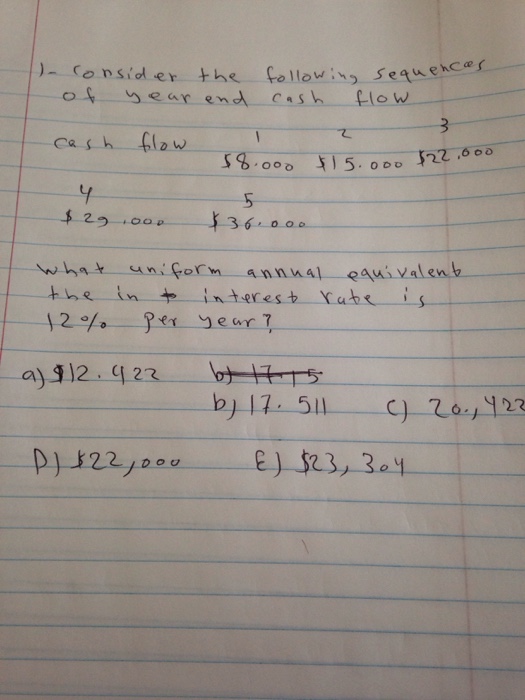 1- consider the following sequences
of year end cash flow
cash flow 1 2 3
$8.000 $15.000 $22,000
4 5
$29,000 $36.000
what uniform annual equivalent
the in t interest rate is
12% per year?
a) $12.422 b) 17.15
b) 17.511 c) 20.,422
D) $22,000 E) $23,304